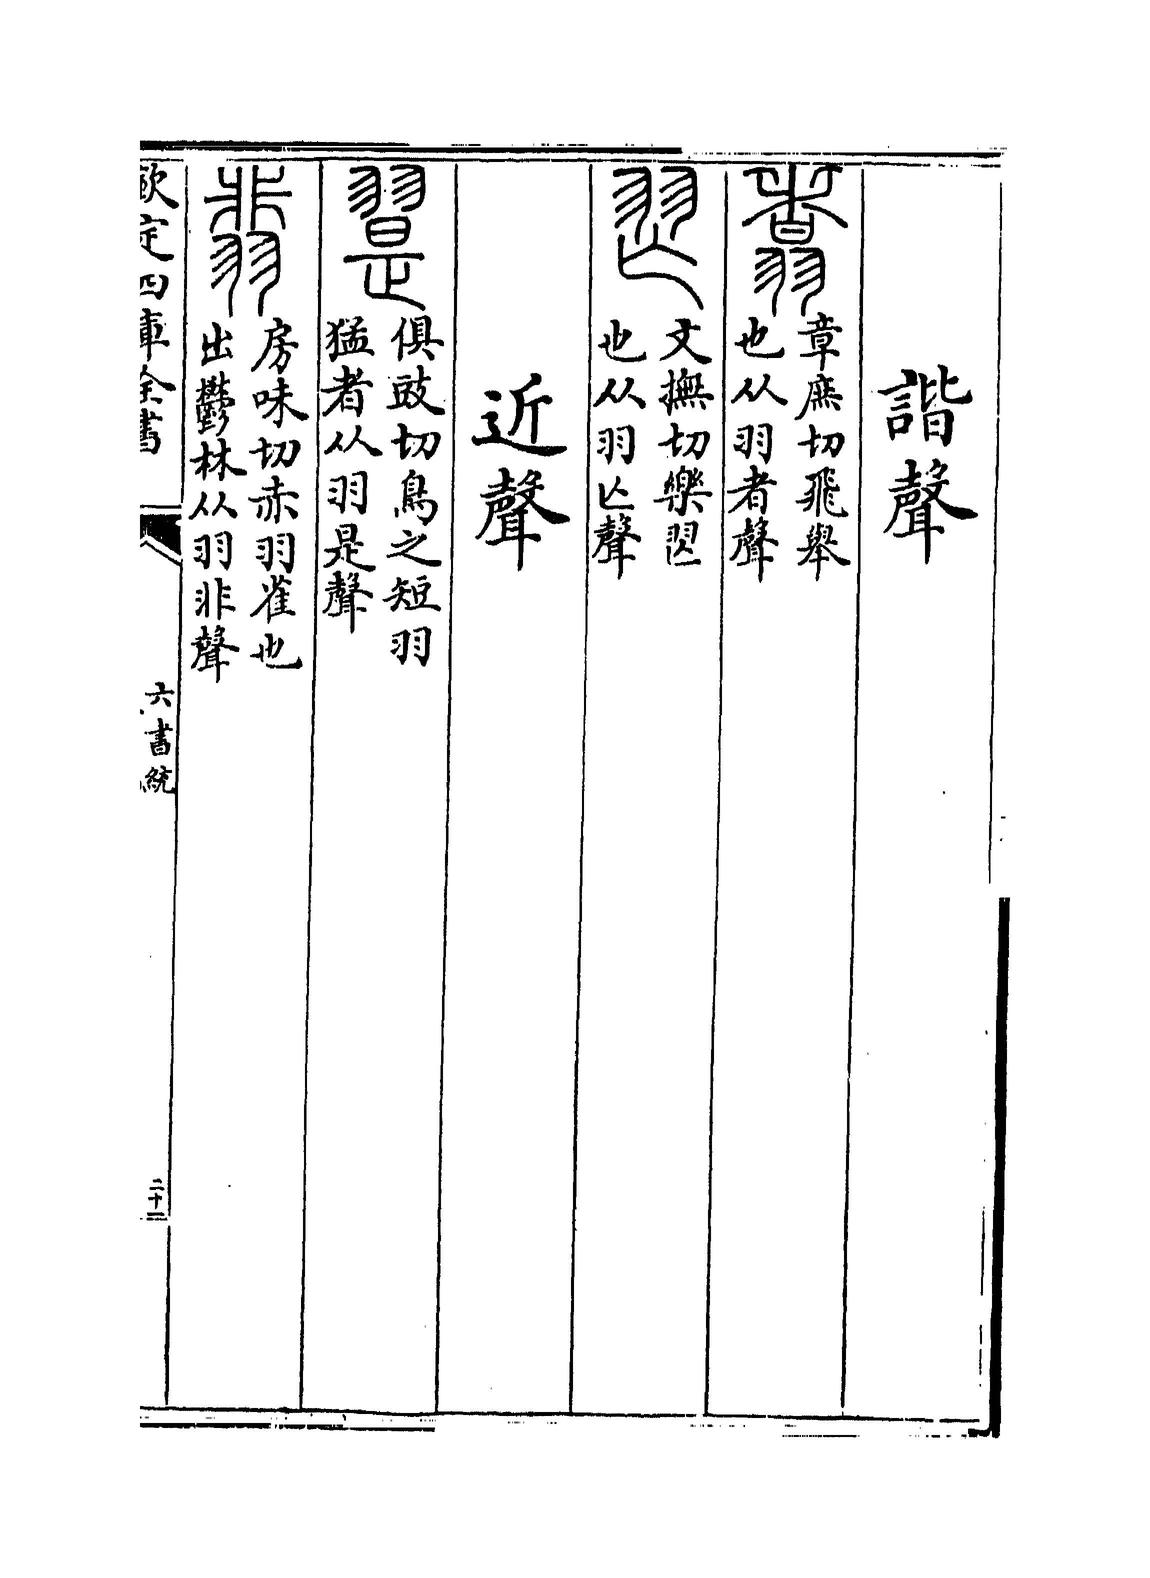 諧聲
翥
章庶切飛舉
也从羽者聲
文撫切樂
也从羽亾聲
近聲
翨
俱豉切鳥之短羽
猛者从羽是聲
翡
房味切赤羽雀也
出鬱林从羽非聲
欽定四庫全書
六書統
二十一